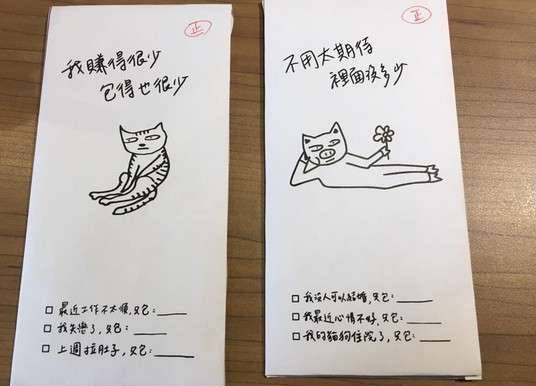 正
我賺得很少
包得也很少
□ 最近工作不太順，只包：_____
□ 我失戀了，只包：_____
□ 上週拉肚子，只包：_____
正
不用太期待
裡面沒多少
□ 我沒人可以結婚，只包：_____
□ 我最近心情不好，只包：_____
□ 我的貓狗住院了，只包：_____